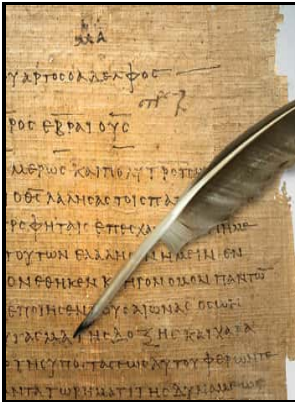 ΥΑΡΤΟΣ Ο ΑΔΕΛΦΟΣ
ΡΟΣ ΕΒΡΑΙΟΥΣ
ΜΕΡΩΣ ΚΑΙ ΠΟΛΥΤΡΟΠΩΣ
Ο Θ̅Σ̅ ΛΑΛΗΣΑΣ ΤΟΙΣ ΠΑ
ΡΟΦΗΤΑΙΣ ΕΠ ΕΣΧΑ ΗΜΕ
ΤΟΥΤΩΝ ΕΛΑΛΗΣΕΝ ΗΜΕΙΝ ΕΝ
ΟΝ ΕΘΗΚΕΝ ΚΛΗΡΟΝΟΜΟΝ ΠΑΝΤΩ̅
ΕΠΟΙΗΣΕΝ ΤΟΥΣ ΑΙΩΝΑΣ ΟΣ ΩΝ
ΥΓΑΣΜΑ ΤΗΣ ΔΟΞΗΣ ΚΑΙ ΧΑΡΑ
Ρ ΤΗΣ ΥΠΟΣΤΑΣΕΩΣ ΑΥΤΟΥ ΦΕΡΩΝ ΤΕ
ΑΝΤΑ ΤΩ ΡΗΜΑΤΙ ΤΗΣ ΔΥΝΑΜΕΩΣ